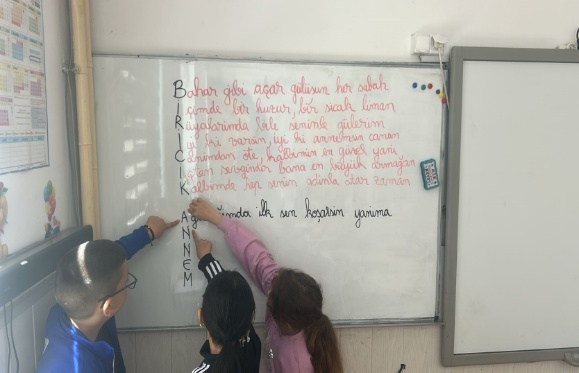 Bahar gibi açar gülüşün her sabah
İçimde bir huzur, bir sıcak liman
Rüyalarımda bile seninle gülerim
İyi ki varsın, iyi ki annemsin canan
Canımdan öte, kalbimin en güzel yanı
İçten sevgindir bana en büyük armağan
Kalbimde hep senin adınla atar zaman
A ilk sen koşarsın yanıma
N
N
E
M